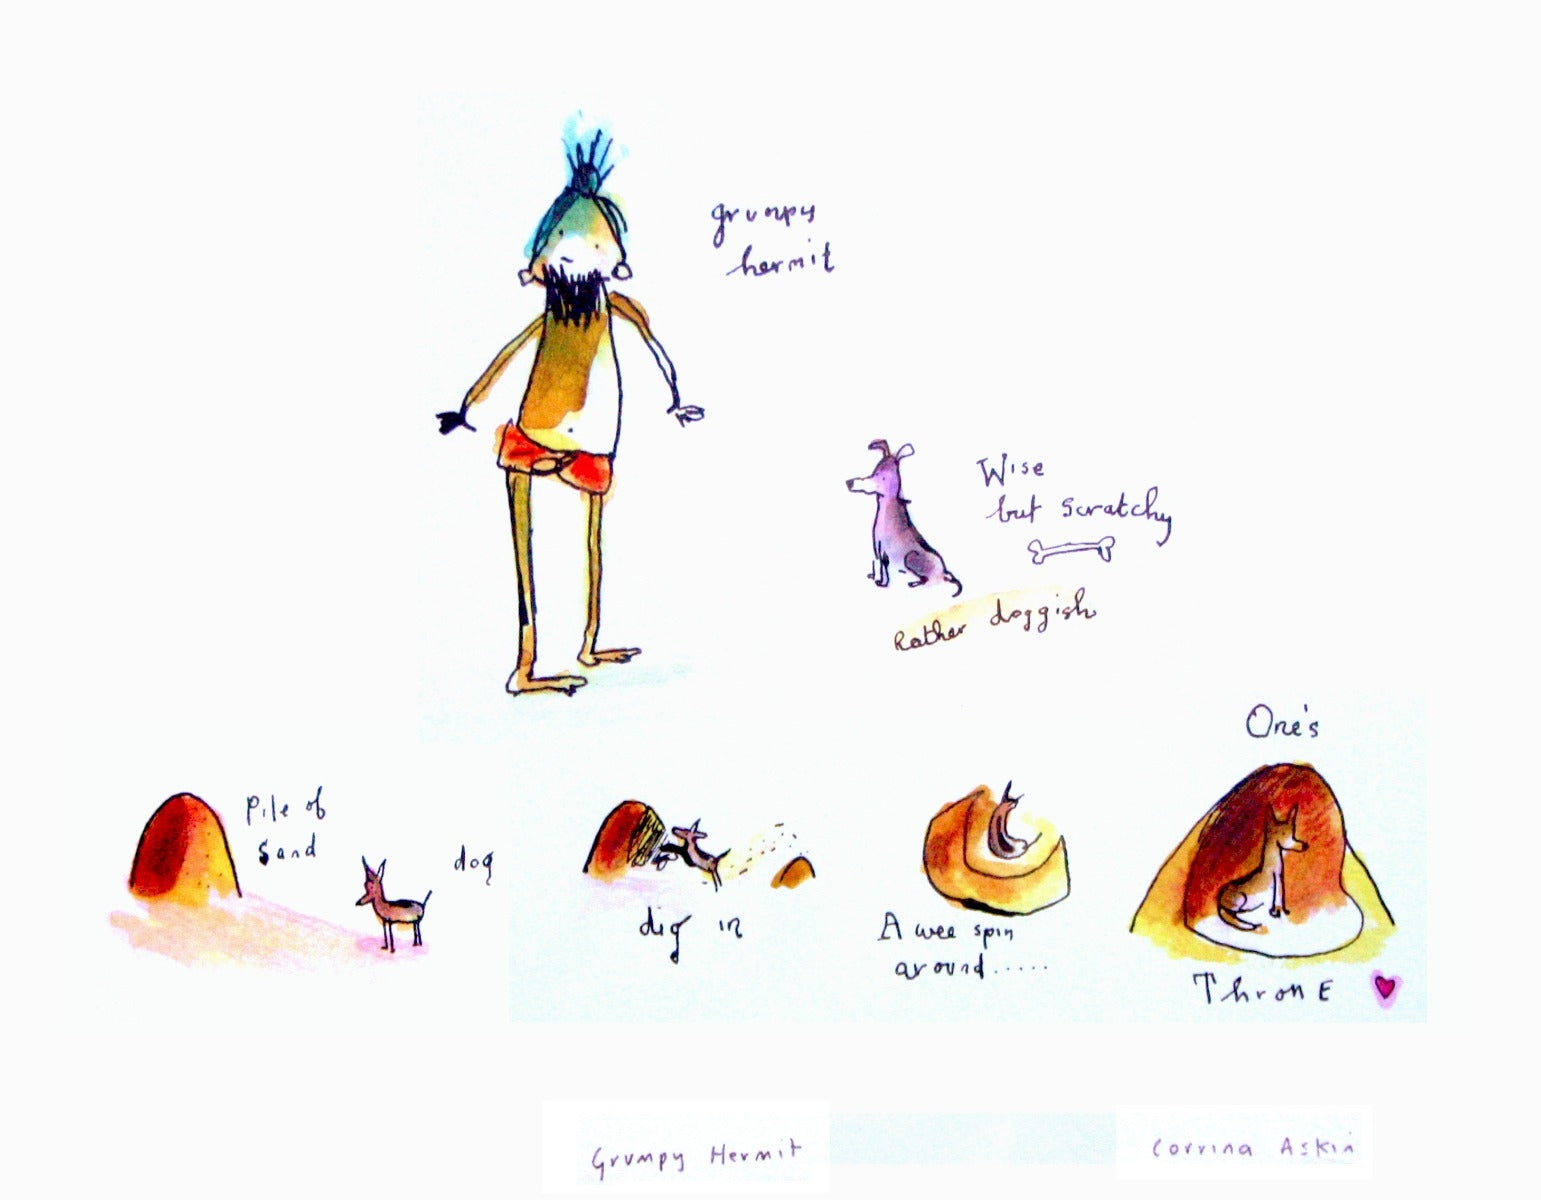 grumpy
hermit
Wise
but scratchy
Rather doggish
Pile of
Sand
dog
dig in
A wee spin
around.....
One's
ThronE
Grumpy Hermit
Corrina Askin